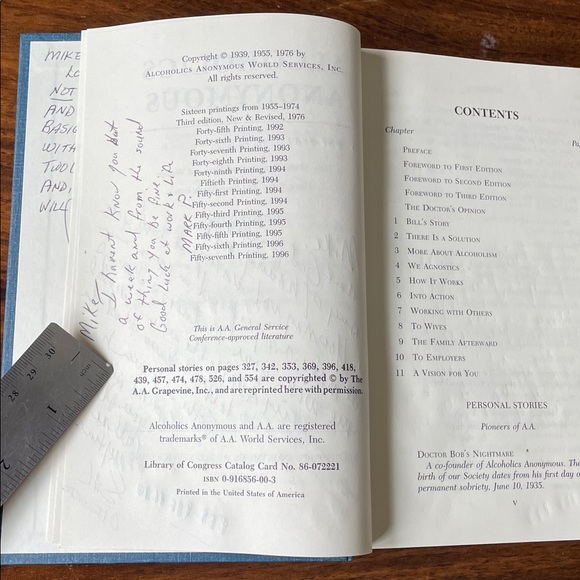 MIKE
NOT
AND
BASIC
WITH
TOOL
AND,
WILL
Copyright © 1939, 1955, 1976 by
ALCOHOLICS ANONYMOUS WORLD SERVICES, INC.
All rights reserved.
Sixteen printings from 1955–1974
Third edition, New & Revised, 1976
Forty-fifth Printing, 1992
Forty-sixth Printing, 1993
Forty-seventh Printing, 1993
Forty-eighth Printing, 1993
Forty-ninth Printing, 1994
Fiftieth Printing, 1994
Fifty-first Printing, 1994
Fifty-second Printing, 1994
Fifty-third Printing, 1995
Fifty-fourth Printing, 1995
Fifty-fifth Printing, 1995
Fifty-sixth Printing, 1996
Fifty-seventh Printing, 1996
Mike,
I havent know you but
a week and from the sound
of thing you be fine.
Good luck at work & life
MARK P.
This is A.A. General Service
Conference-approved literature
Personal stories on pages 327, 342, 353, 369, 396, 418,
439, 457, 474, 478, 526, and 554 are copyrighted © by The
A.A. Grapevine, Inc., and are reprinted here with permission.
Alcoholics Anonymous and A.A. are registered
trademarks® of A.A. World Services, Inc.
Library of Congress Catalog Card No. 86-072221
ISBN 0-916856-00-3
Printed in the United States of America
28 29 30
1
2
CONTENTS
Chapter
PREFACE
FOREWORD TO FIRST EDITION
FOREWORD TO SECOND EDITION
FOREWORD TO THIRD EDITION
THE DOCTOR'S OPINION
1 BILL'S STORY
2 THERE IS A SOLUTION
3 MORE ABOUT ALCOHOLISM
4 WE AGNOSTICS
5 HOW IT WORKS
6 INTO ACTION
7 WORKING WITH OTHERS
8 TO WIVES
9 THE FAMILY AFTERWARD
10 TO EMPLOYERS
11 A VISION FOR YOU
PERSONAL STORIES
Pioneers of A.A.
DOCTOR BOB'S NIGHTMARE
A co-founder of Alcoholics Anonymous. The
birth of our Society dates from his first day of
permanent sobriety, June 10, 1935.
V